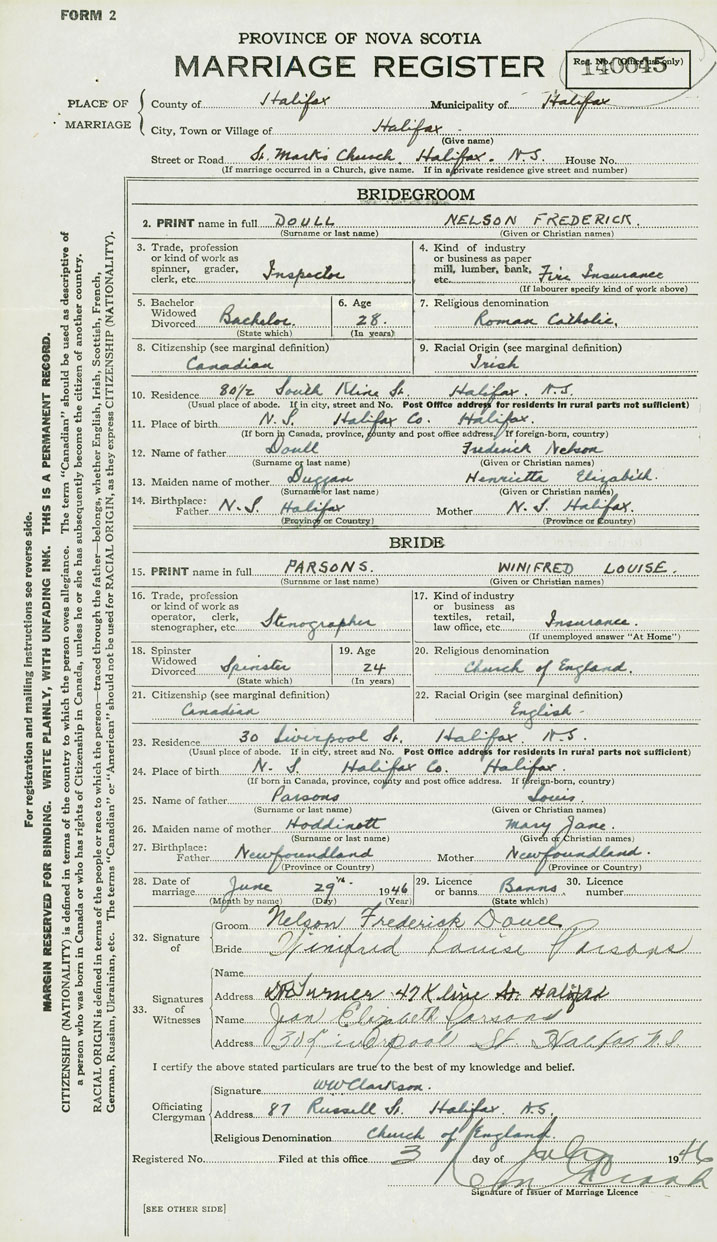 FORM 2
PROVINCE OF NOVA SCOTIA
MARRIAGE REGISTER
Reg. No. (Office use only)
140045
PLACE OF MARRIAGE
County of Halifax Municipality of Halifax
City, Town or Village of Halifax
(Give name)
Street or Road St. Mark's Church. Halifax. N.S. House No.
(If marriage occurred in a Church, give name. If in a private residence give street and number)
BRIDEGROOM
2. PRINT name in full DOULL NELSON FREDERICK.
(Surname or last name) (Given or Christian names)
3. Trade, profession or kind of work as spinner, grader, clerk, etc. Inspector
4. Kind of industry or business as paper mill, lumber, bank, etc. Fire Insurance
(If labourer specify kind of work above)
5. Bachelor Widowed Divorced Bachelor.
(State which)
6. Age 28.
(In years)
7. Religious denomination
Roman Catholic.
8. Citizenship (see marginal definition)
Canadian
9. Racial Origin (see marginal definition)
Irish
10. Residence 80½ South Kline St. Halifax. N.S.
(Usual place of abode. If in city, street and No. Post Office address for residents in rural parts not sufficient)
11. Place of birth N.S. Halifax Co. Halifax.
(If born in Canada, province, county and post office address. If foreign-born, country)
12. Name of father Doull Frederick Nelson
(Surname or last name) (Given or Christian names)
13. Maiden name of mother Duggan Henrietta Elizabeth.
(Surname or last name) (Given or Christian names)
14. Birthplace: Father N.S. Halifax Mother N.S. Halifax.
(Province or Country) (Province or Country)
BRIDE
15. PRINT name in full PARSONS. WINIFRED LOUISE.
(Surname or last name) (Given or Christian names)
16. Trade, profession or kind of work as operator, clerk, stenographer, etc. Stenographer
17. Kind of industry or business as textiles, retail, law office, etc. Insurance.
(If unemployed answer "At Home")
18. Spinster Widowed Divorced Spinster
(State which)
19. Age 24
(In years)
20. Religious denomination
Church of England.
21. Citizenship (see marginal definition)
Canadian
22. Racial Origin (see marginal definition)
English.
23. Residence 30 Liverpool St. Halifax. N.S.
(Usual place of abode. If in city, street and No. Post Office address for residents in rural parts not sufficient)
24. Place of birth N.S. Halifax Co. Halifax.
(If born in Canada, province, county and post office address. If foreign-born, country)
25. Name of father Parsons Louis.
(Surname or last name) (Given or Christian names)
26. Maiden name of mother Hoddinott Mary Jane.
(Surname or last name) (Given or Christian names)
27. Birthplace: Father Newfoundland Mother Newfoundland.
(Province or Country) (Province or Country)
28. Date of marriage June 29th 1946
(Month by name) (Day) (Year)
29. Licence or banns Banns
(State which)
30. Licence number
32. Signature of
Groom Nelson Frederick Doull
Bride Winifred Louise Parsons
33. Signatures of Witnesses
Name
Address Turner 47 Kline St. Halifax
Name Jean Elizabeth Parsons
Address 30 Liverpool St. Halifax N.S.
I certify the above stated particulars are true to the best of my knowledge and belief.
Officiating Clergyman
Signature WW Clarkson.
Address 87 Russell St. Halifax. N.S.
Religious Denomination Church of England.
Registered No. Filed at this office 3 day of July 1946
Signature of Issuer of Marriage Licence
[SEE OTHER SIDE]
For registration and mailing instructions see reverse side.
MARGIN RESERVED FOR BINDING. WRITE PLAINLY, WITH UNFADING INK. THIS IS A PERMANENT RECORD.
CITIZENSHIP (NATIONALITY) is defined in terms of the country to which the person owes allegiance. The term "Canadian" should be used as descriptive of
a person who was born in Canada or who has rights of Citizenship in Canada, unless he or she has subsequently become the citizen of another country.
RACIAL ORIGIN is defined in terms of the people or race to which the person—traced through the father—belongs, whether English, Irish, Scottish, French,
German, Russian, Ukrainian, etc. The terms "Canadian" or "American" should not be used for RACIAL ORIGIN, as they express CITIZENSHIP (NATIONALITY).